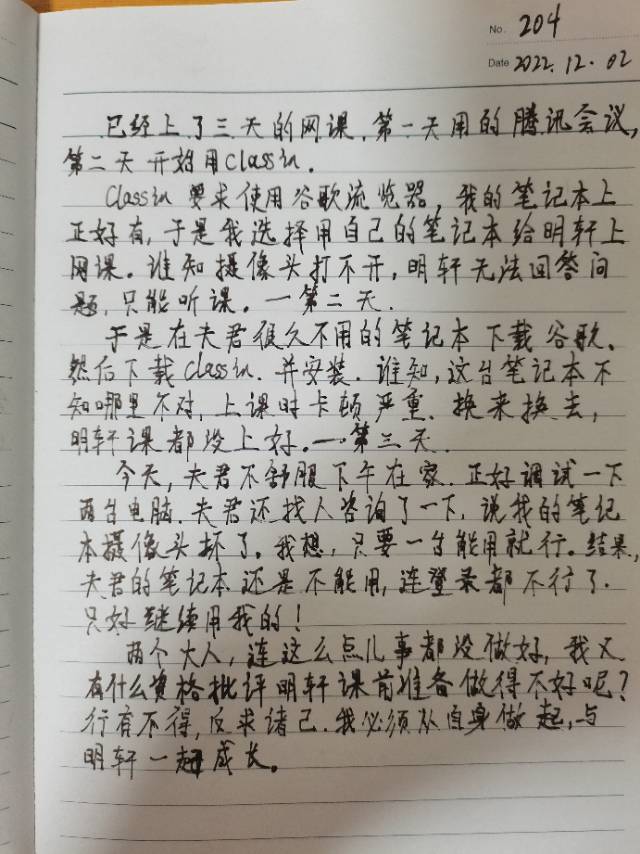 No. 204
Date 2022.12.02
已经上了三天的网课,第一天用的腾讯会议,
第二天开始用classin.
Classin要求使用谷歌流览器,我的笔记本上
正好有,于是我选择用自己的笔记本给明轩上
网课。谁知摄像头打不开,明轩无法回答问
题,只能听课。—第二天.
于是在夫君很久不用的笔记本下载谷歌、
然后下载classin.并安装.谁知,这台笔记本不
知哪里不对,上课时卡顿严重.换来换去,
明轩课都没上好.—第三天.
今天,夫君不舒服下午在家.正好调试一下
两台电脑.夫君还找人咨询了一下,说我的笔记
本摄像头坏了。我想,只要一台能用就行。结果,
夫君的笔记本还是不能用,连登录都不行了.
只好继续用我的!
两个大人,连这么点儿事都没做好,我又
有什么资格批评明轩课前准备做得不好呢?
行有不得,反求诸己.我必须从自身做起,与
明轩一起成长。